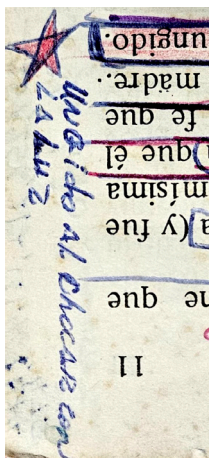 11
ne que
a (y fue
mísima
que él
fe que
madre..
ungido.
Ungido al chocar con
la luz